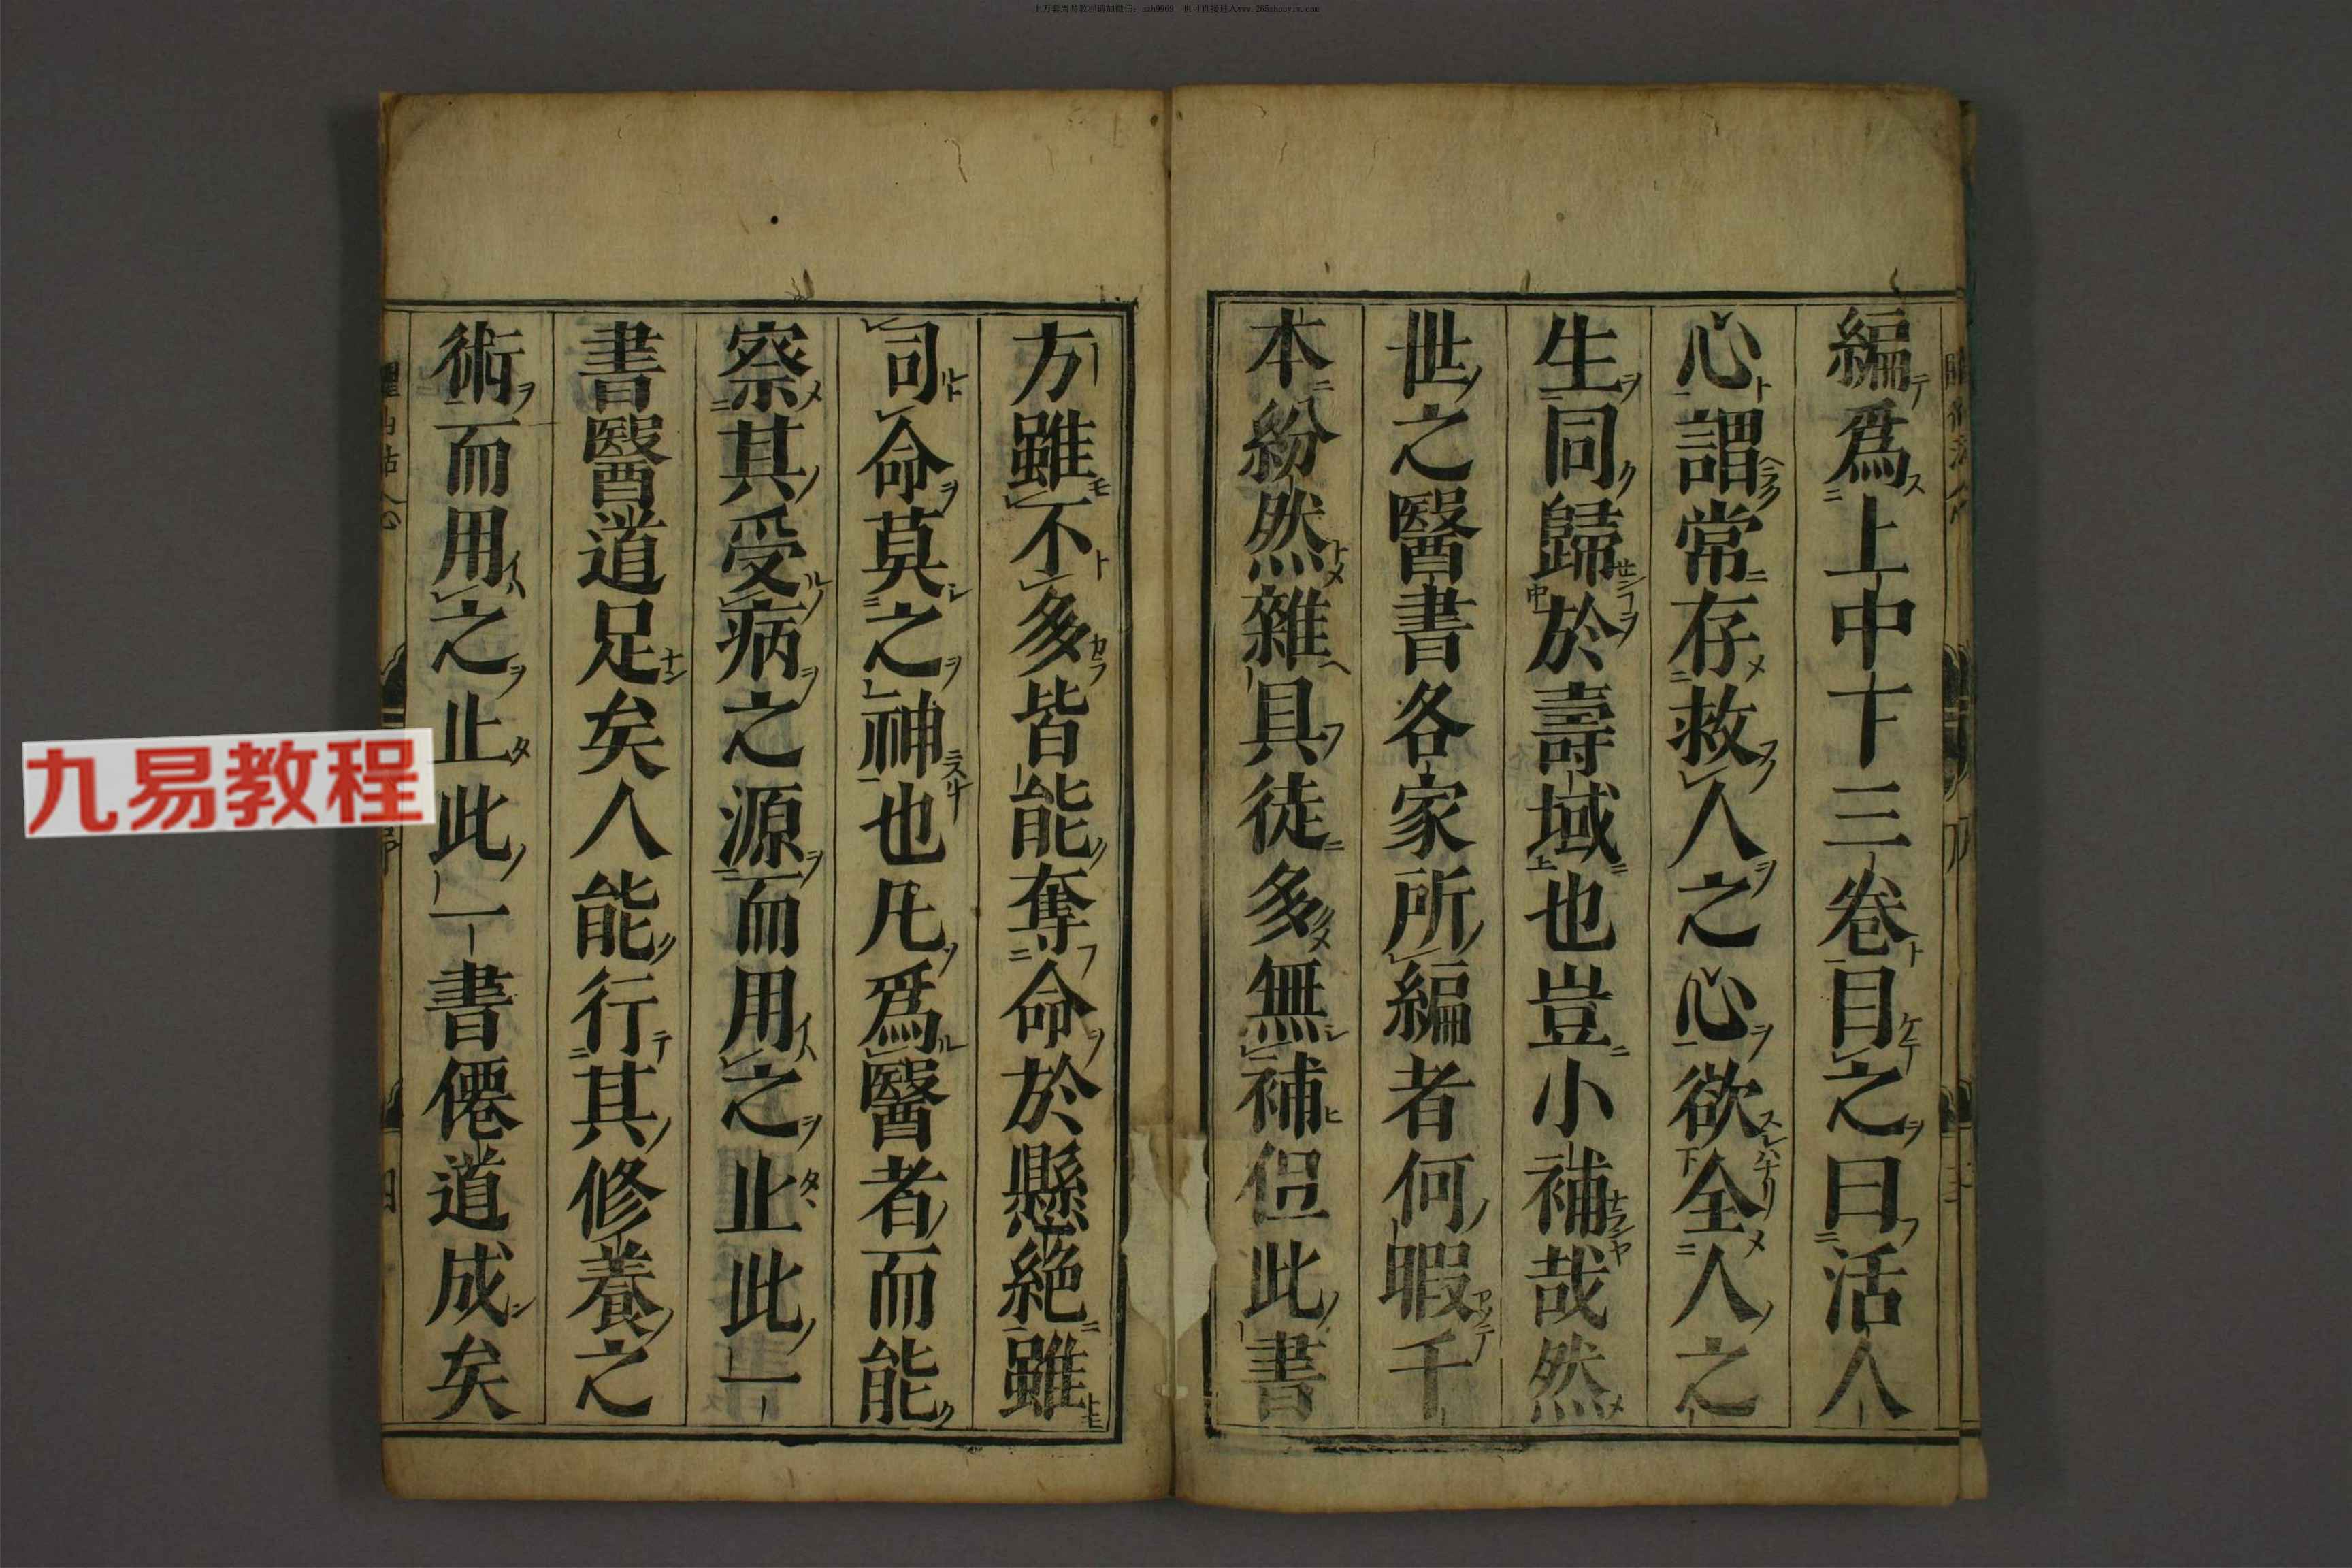 上万套周易教程请加微信：axh9969 也可直接进入www.265zhouyiw.com
編爲上中下三卷目之曰活人
心謂常存救人之心欲全人之
生同歸於壽域也豈小補哉然
世之醫書各家所編者何暇千
本紛然雜具徒多無補但此書
方雖不多皆能奪命於懸絶雖
司命莫之神也凡爲醫者而能
察其受病之源而用之止此一
書醫道足矣人能行其修養之
術而用之止此一書僊道成矣
九易教程